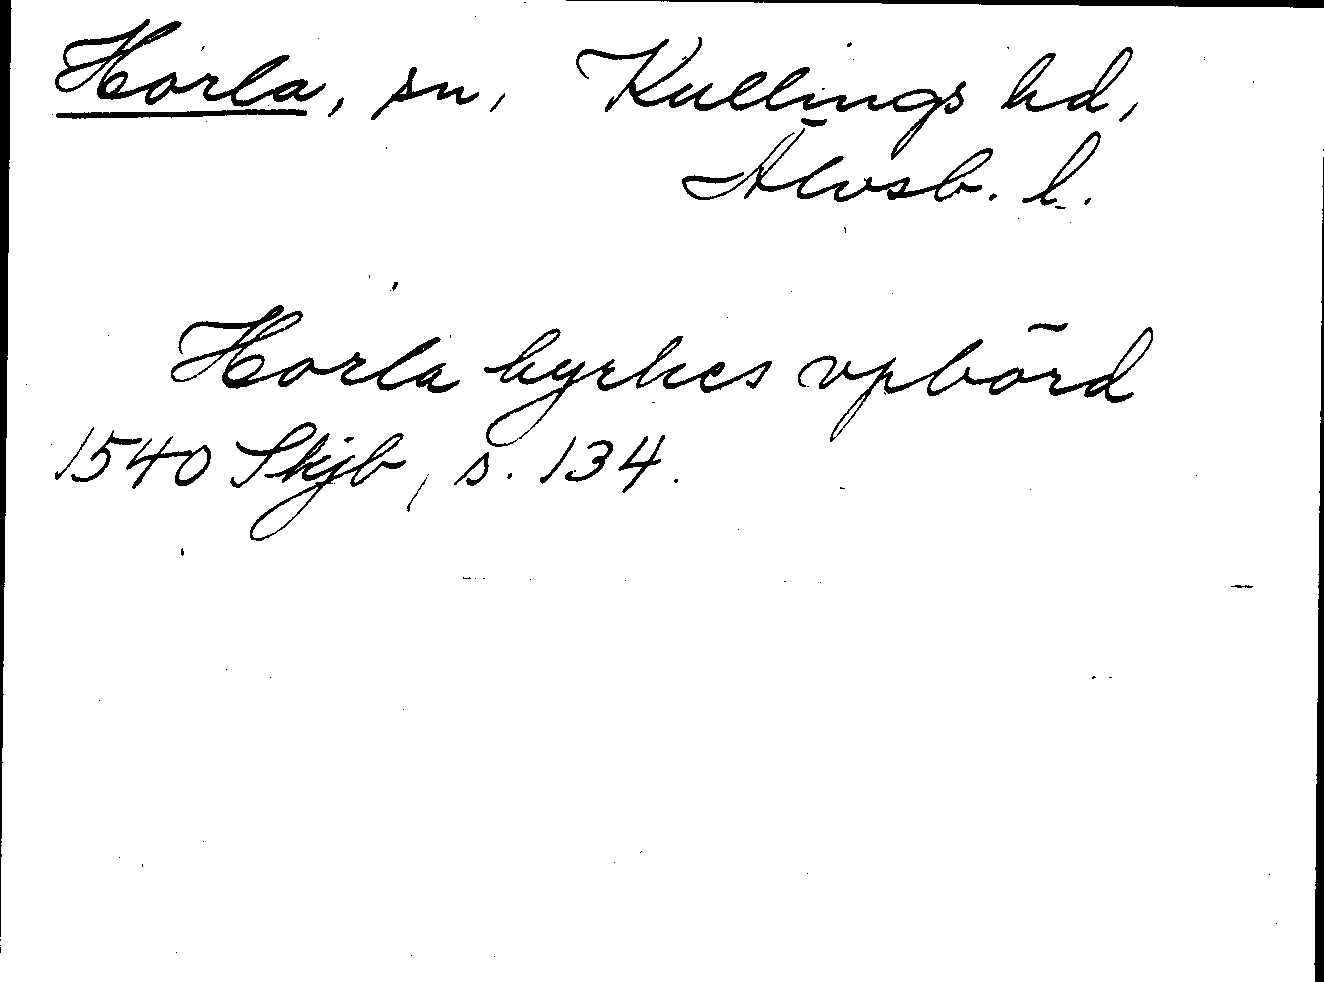 Horla, sn, Kullings hd,
Älvsb. l.
Horla kyrkes vpbörd
1540 Skjb, s. 134.